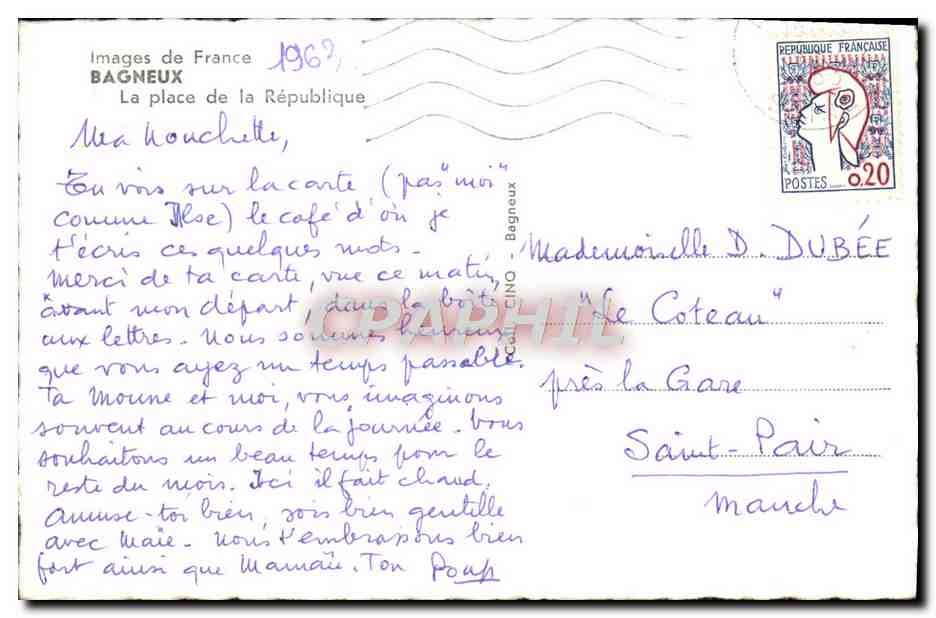 Images de France
BAGNEUX
La place de la République
1963
Ma Nouchette,
Tu vois sur la carte (pas "moi"
comme Ilse) le café d'où je
t'écris ces quelques mots.
Merci de ta carte, vue ce matin,
avant mon départ, dans la boîte
aux lettres. Nous sommes heureux
que vous ayez un temps passable.
Ta Moune et moi, vous imaginons
souvent au cours de la journée. Vous
souhaitons un beau temps pour le
reste du mois. Ici il fait chaud.
Amuse-toi bien, sois bien gentille
avec Maïe. Nous t'embrassons bien
fort ainsi que Mamaïe. Ton Poup
Coll. CINO . Bagneux
REPUBLIQUE FRANÇAISE
POSTES 0,20
Mademoiselle D. DUBÉE
"Le Coteau"
près la Gare
Saint-Pair
Manche
CPAPHIL